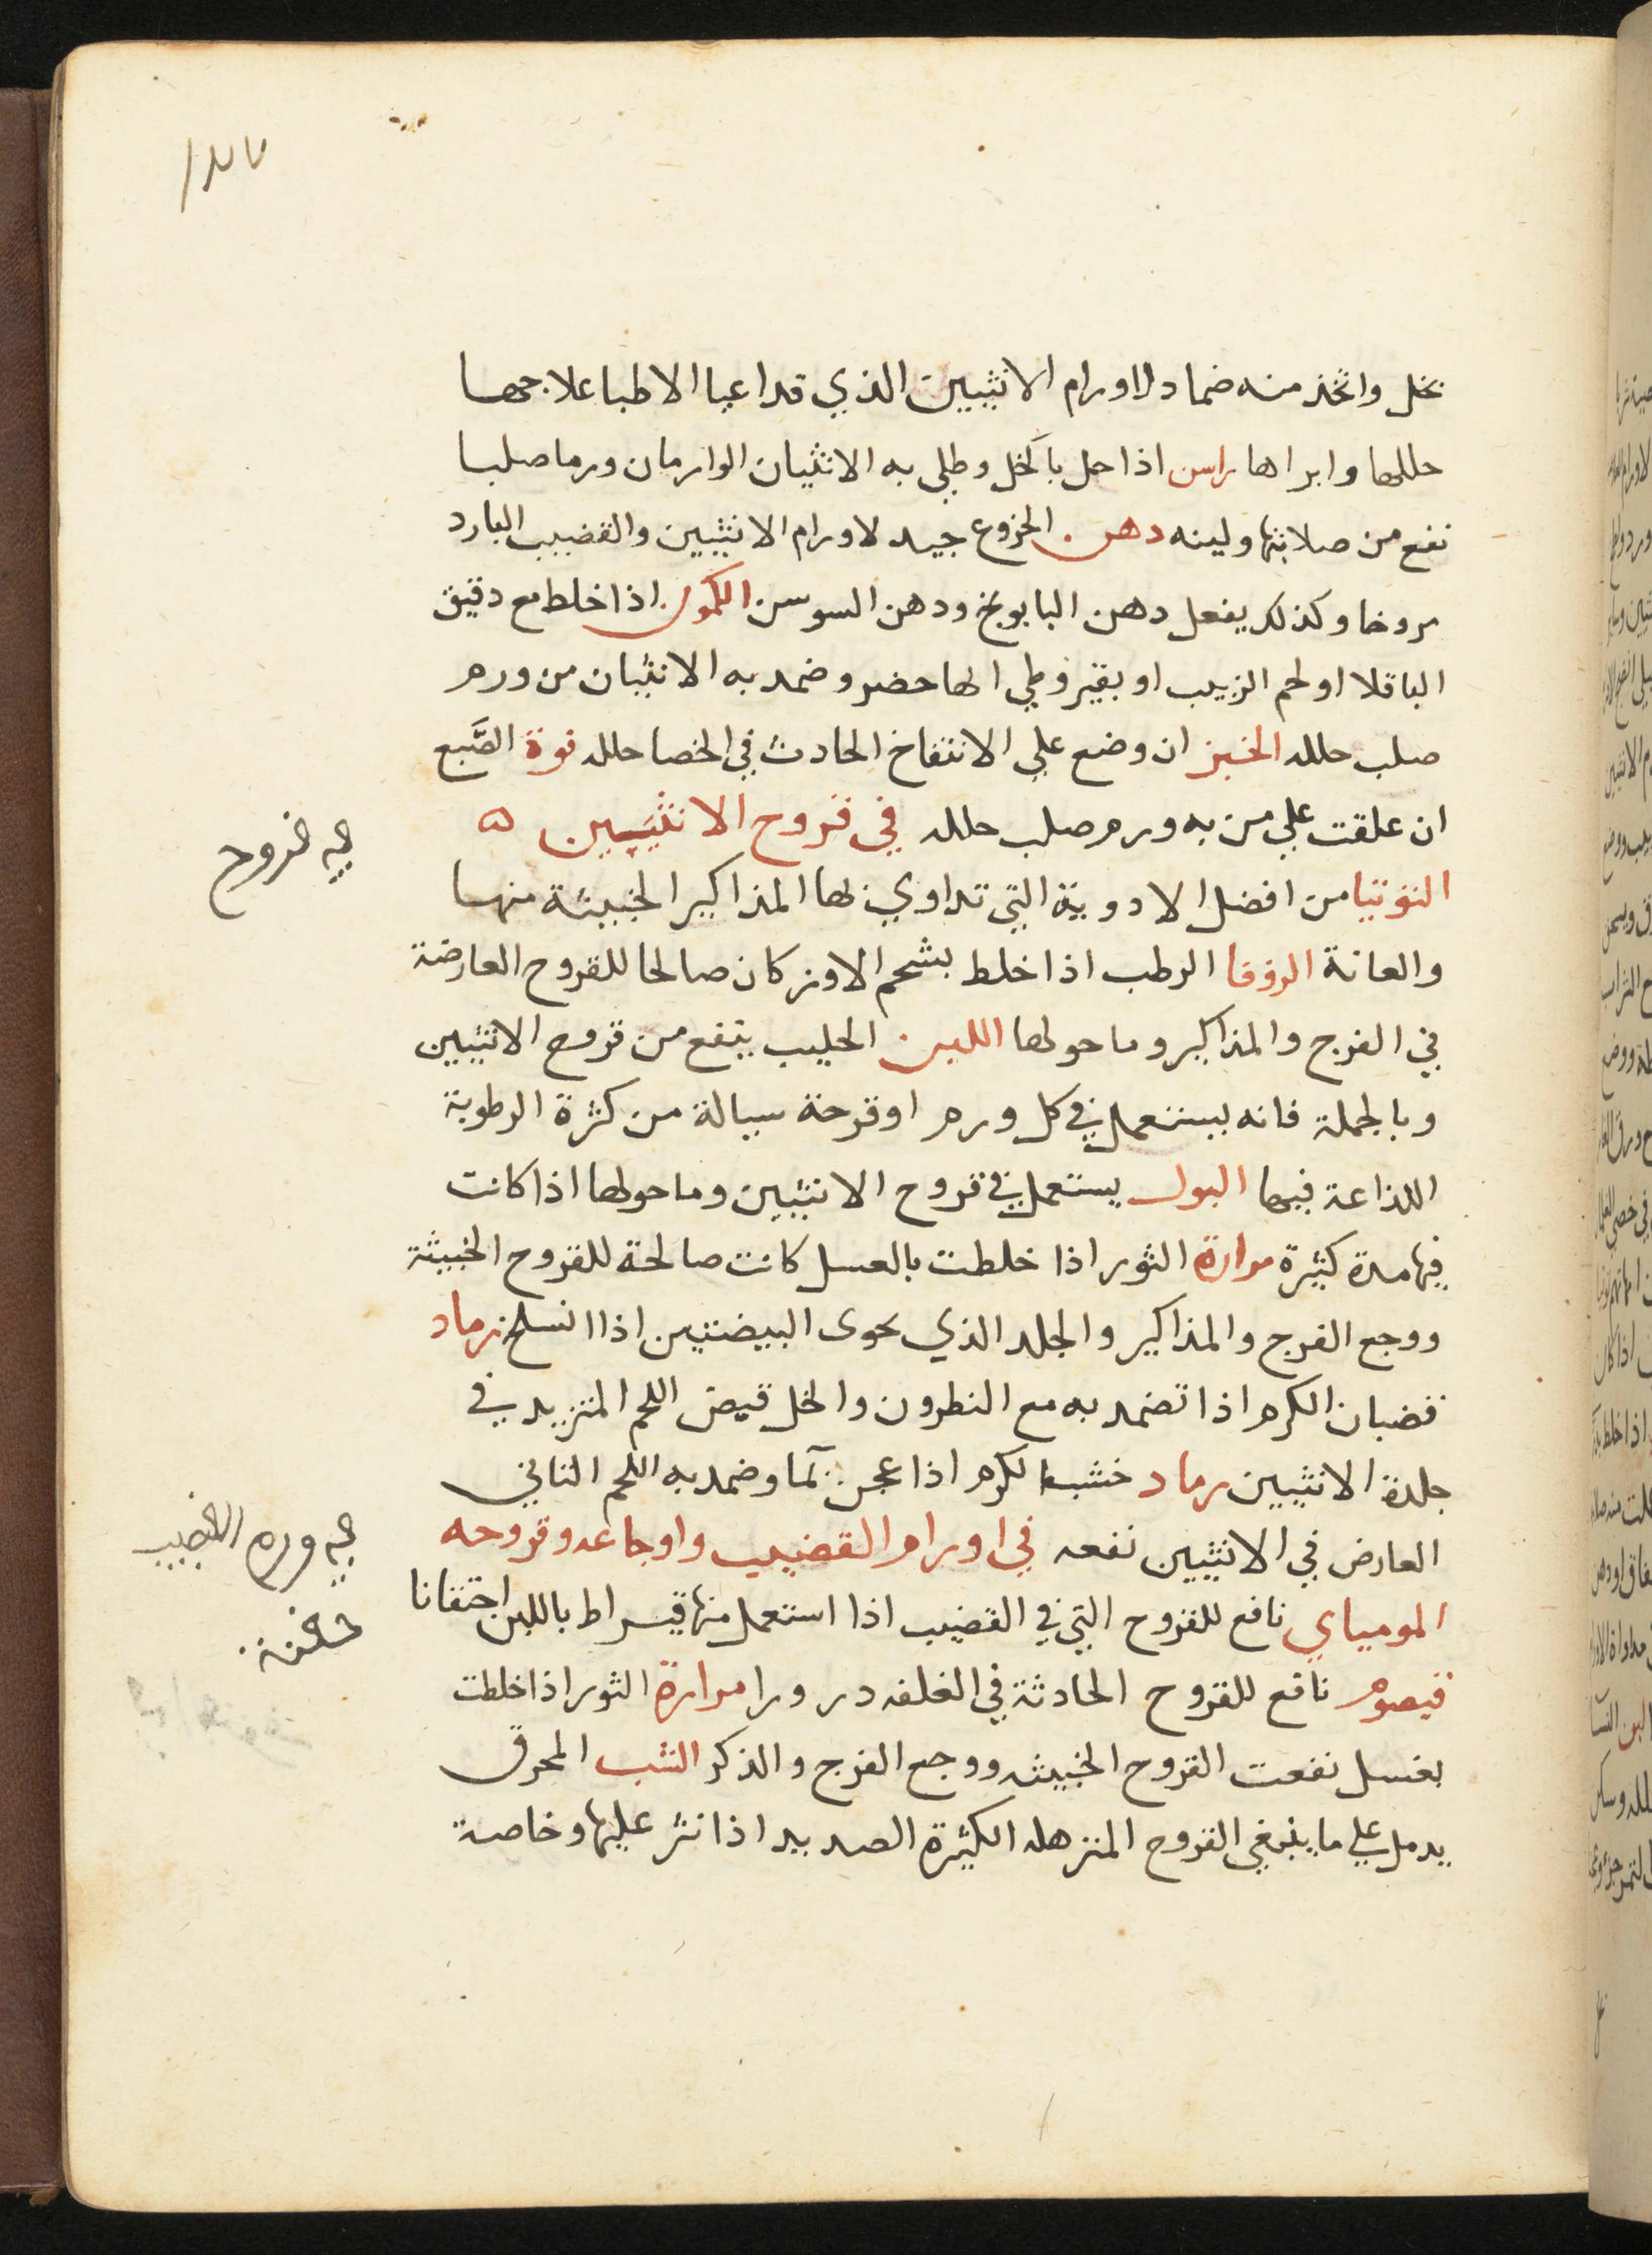 بخل واتخذ منه ضماد لاورام الانثيين الذي قد اعيا الاطبا علاجهما
حللها وابراها راسن اذا حل بالخل وطلي به الانثيان الوارمان ورما صلبا
نفع من صلابتها ولينه دهن الخروع جيد لاورام الانثيين والقضيب البارد
مروخا وكذلك يفعل دهن البابونج ودهن السوسن الكمون اذا خلط مع دقيق
الباقلا او لحم الزبيب او بقيروطي ايها حضر وضمد به الانثيان من ورم
صلب حلله الخبز ان وضع علي الانتفاخ الحادث في الخصا حلله فوة الصَّبغ
ان علقت علي من به ورم صلب حلله في قروح الانثيين ه
التوتيا من افضل الادوية التي تداوي بها المذاكير الخبيثة منها
والعانة الزوفا الرطب اذا خلط بشحم الاوز كان صالحا للقروح العارضة
في الفرج والمذاكير وما حولها اللبن الحليب ينفع من قروح الانثيين
وبالجملة فانه يستعمل في كل ورم او قرحة سيالة من كثرة الرطوبة
اللذاعة فيها البول يستعمل في قروح الانثيين وما حولها اذا كانت
فيها مدة كثيرة مرارة الثور اذا خلطت بالعسل كانت صالحة للقروح الخبيثة
ووجع الفرج والمذاكير والجلد الذي يحوى البيضتين اذا انسلخ رماد
قضبان الكرم اذا تضمد به مع النطرون والخل قبض اللحم المتزيد في
جلدة الانثيين رماد خشب الكرم اذا عجن بمآ وضمد به اللحم الناتي
العارض في الانثيين نفعه في اورام القضيب واوجاعه وقروحه
المومياي نافع للقروح التي في القضيب اذا استعمل منها قيراط باللبن احتقانا
قيصوم نافع للقروح الحادثة في الغلفه درورا مرارة الثور اذا خلطت
بعسل نفعت القروح الخبيثه ووجع الفرج والذكر الشب المحرق
يدمل علي ما ينبغي القروح المترهله الكثيرة الصديد اذا نثر عليها وخاصة
في قروح
في ورم القضيب
حقنة